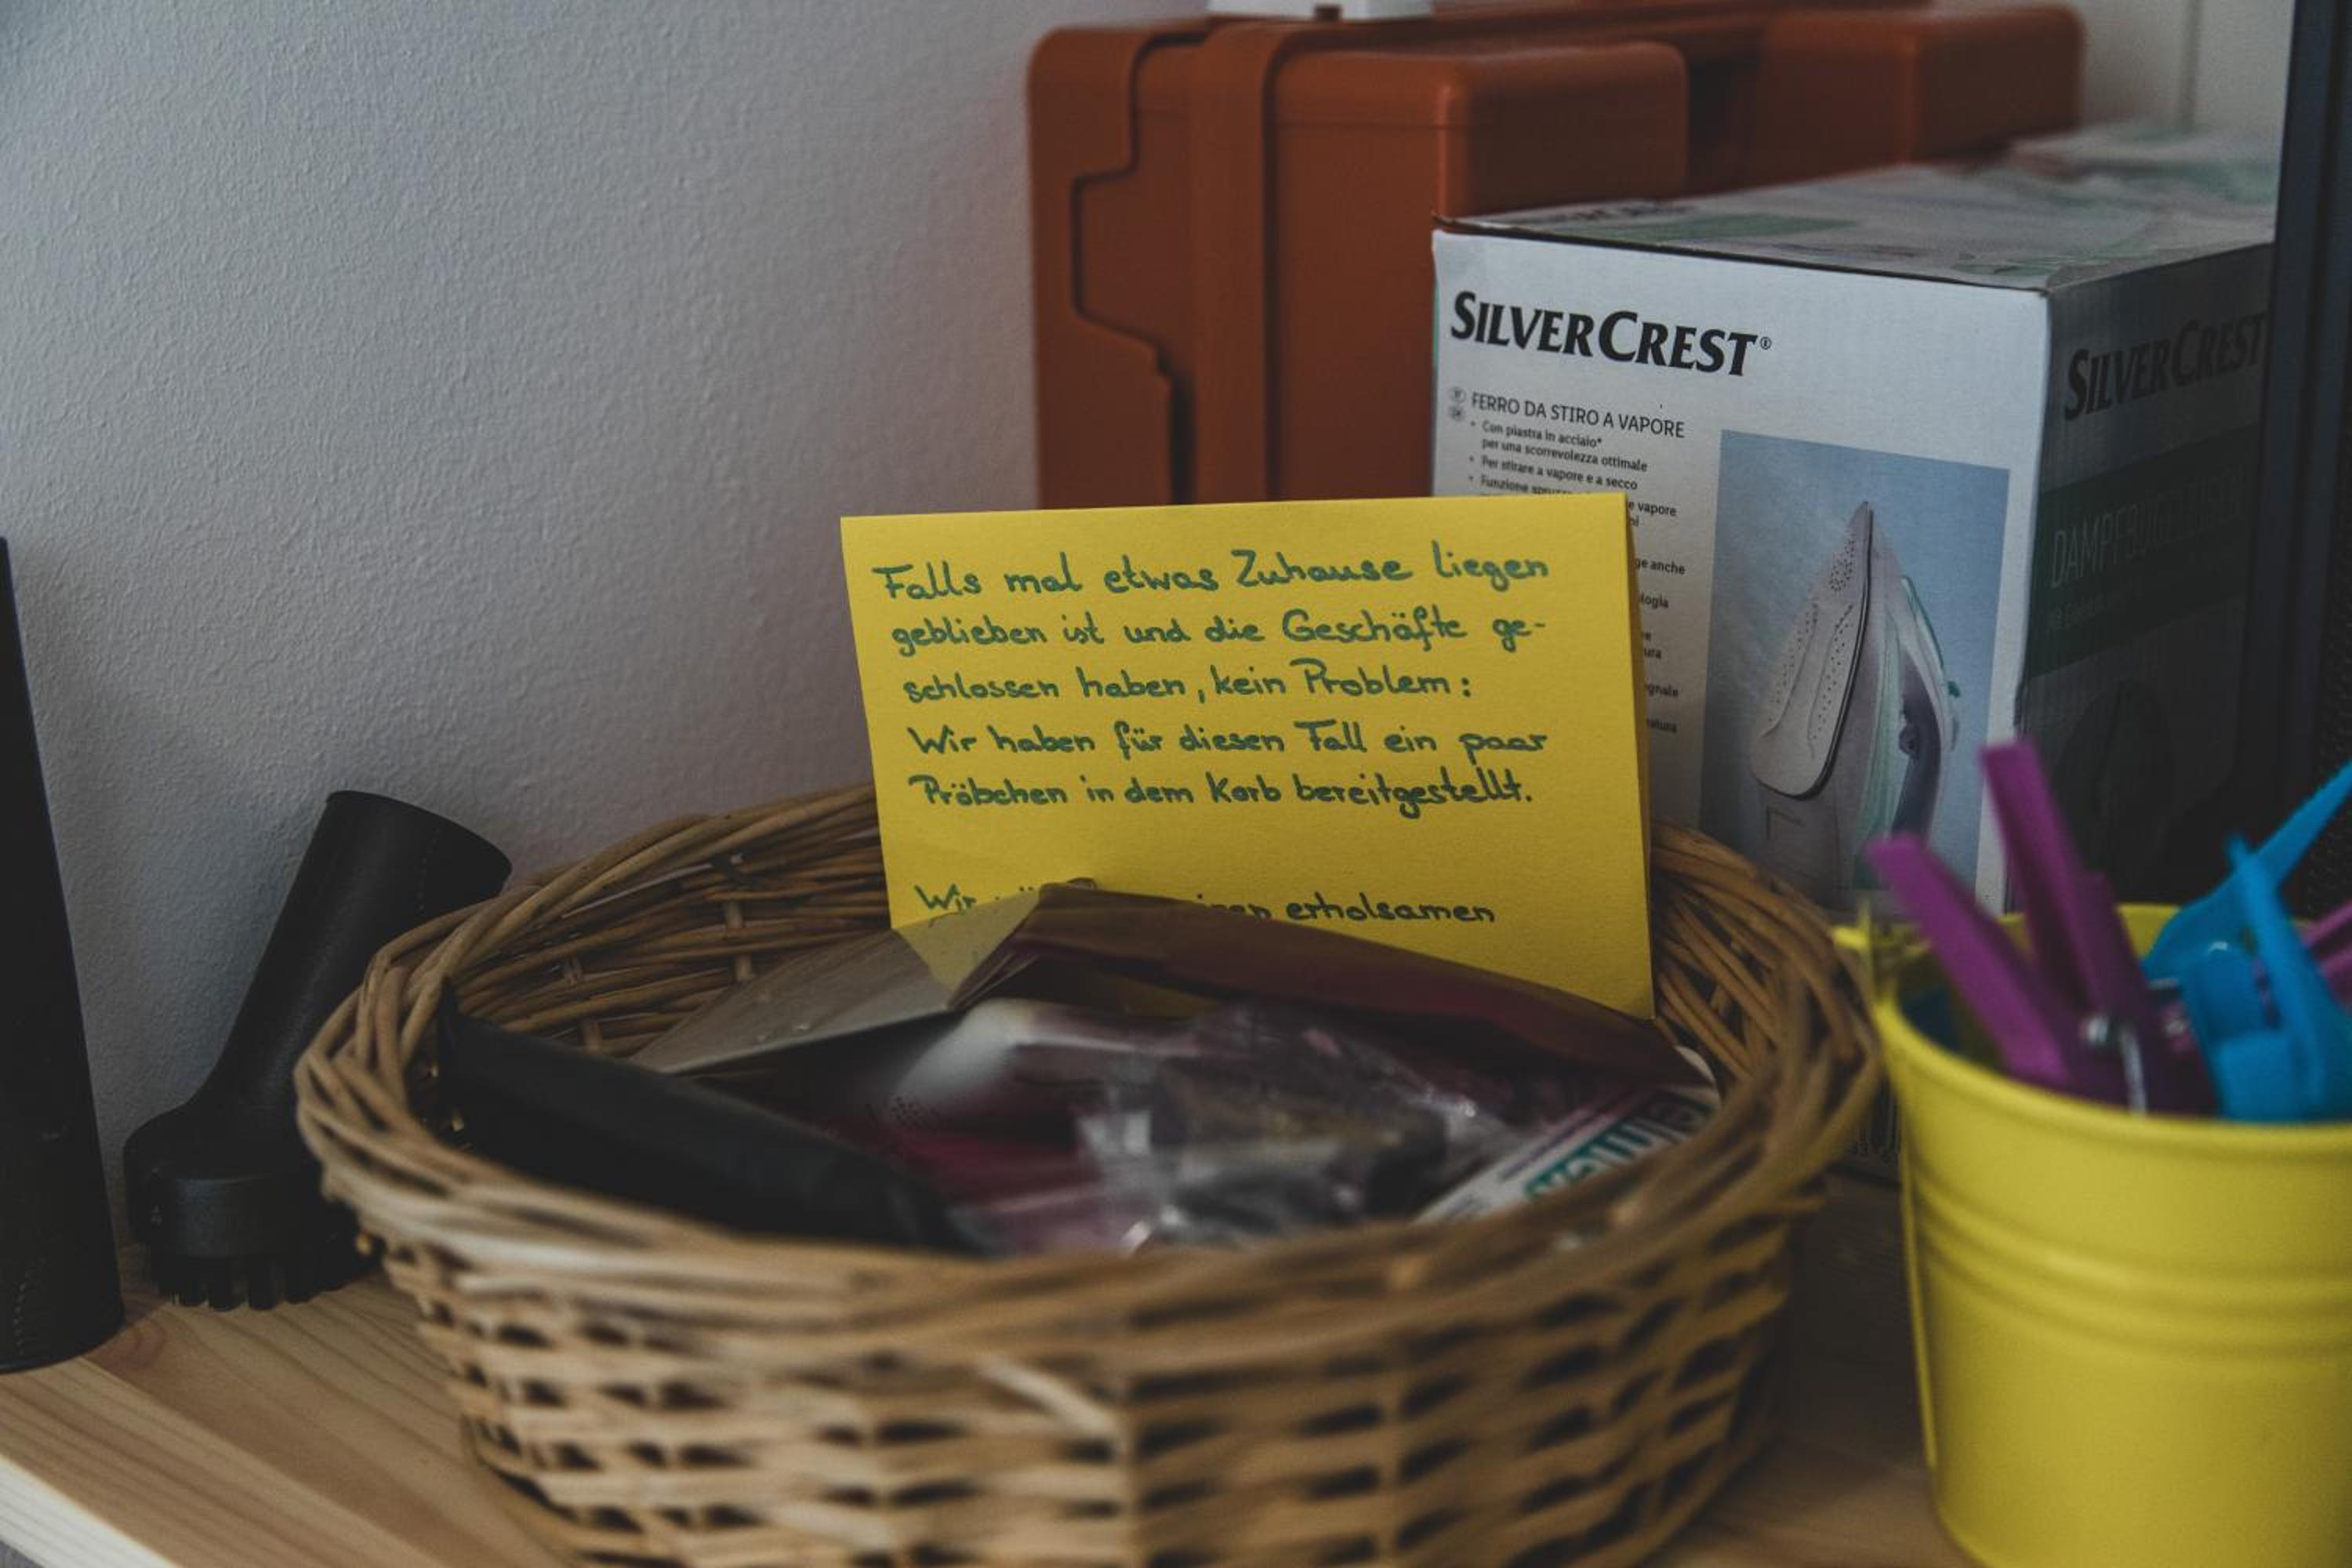 SILVERCREST®
SILVERCREST
FERRO DA STIRO A VAPORE
• Con piastra in acciaio*
per una scorrevolezza ottimale
• Per stirare a vapore e a secco
• Funzione
e vapore
ge anche
Falls mal etwas Zuhause liegen
geblieben ist und die Geschäfte ge-
schlossen haben, kein Problem:
Wir haben für diesen Fall ein paar
Pröbchen in dem Korb bereitgestellt.
Wir erholsamen